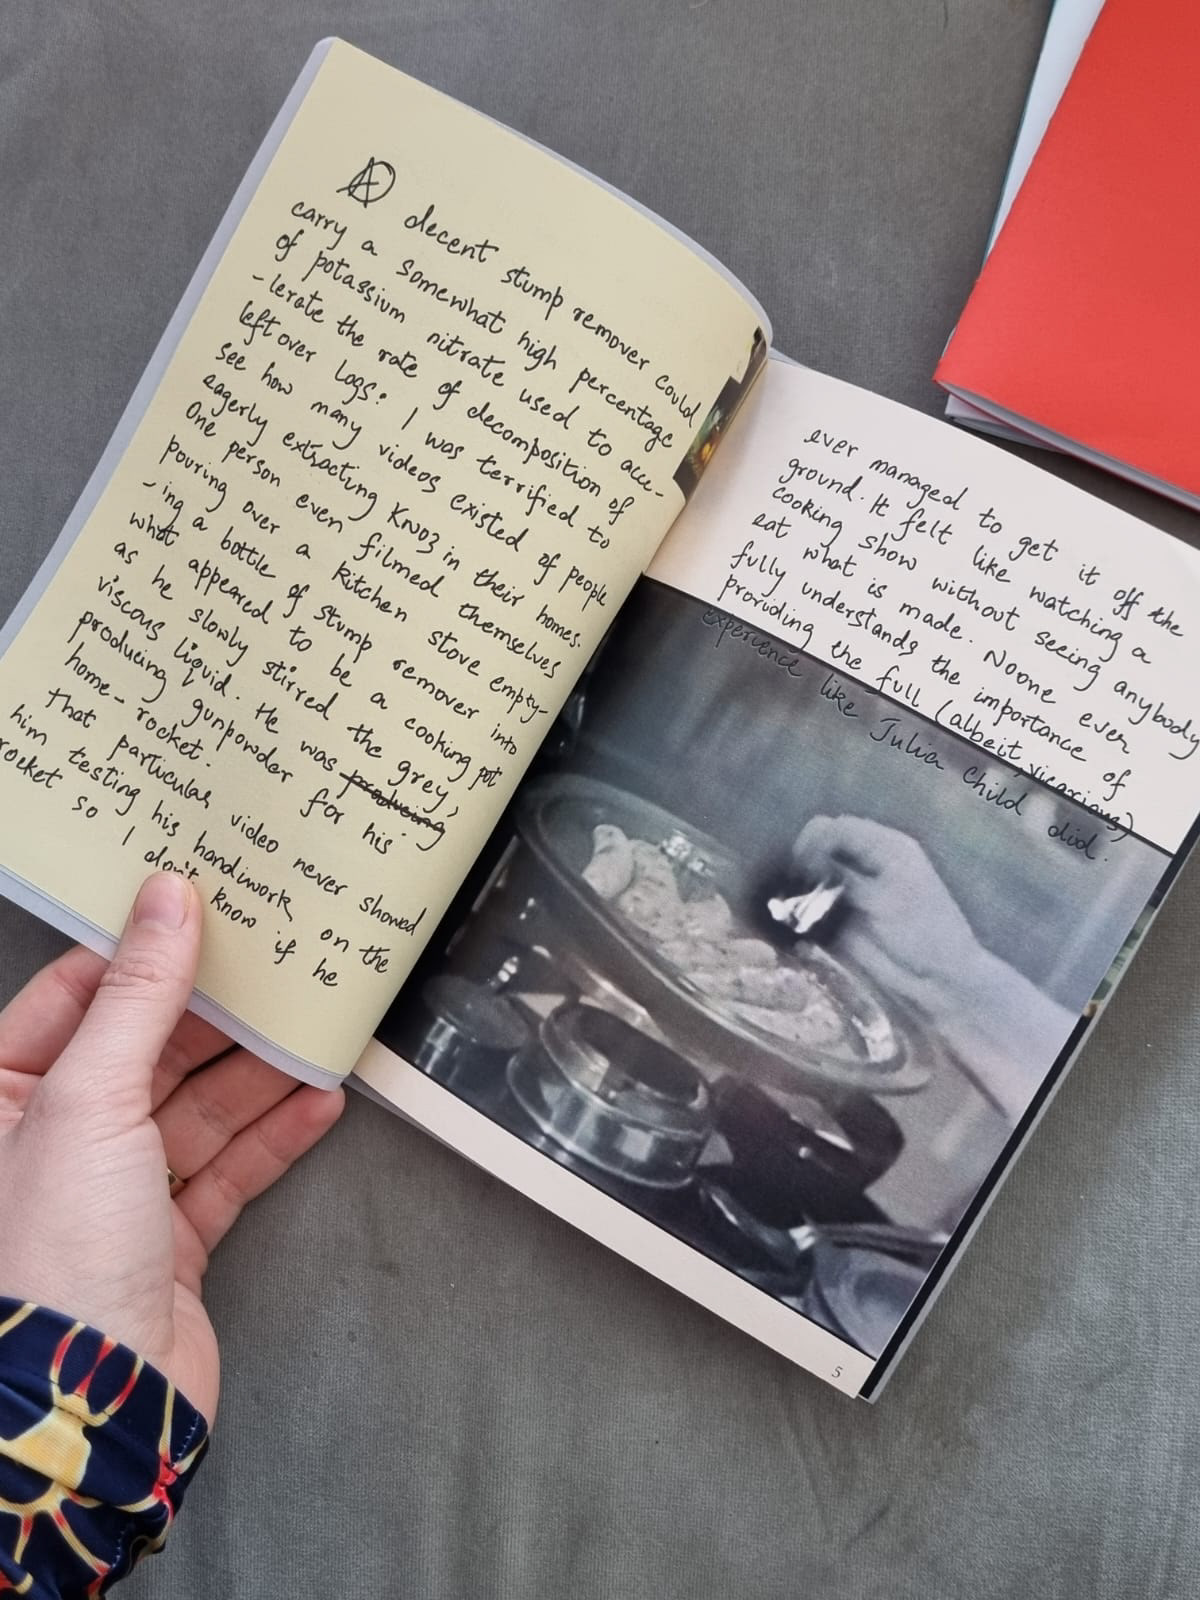 A decent stump remover could
carry a somewhat high percentage
of potassium nitrate used to acce-
-lerate the rate of decomposition of
leftover logs. I was terrified to
see how many videos existed of people
eagerly extracting KNO3 in their homes.
One person even filmed themselves
pouring over a kitchen stove empty-
-ing a bottle of stump remover into
what appeared to be a cooking pot
as he slowly stirred the grey,
viscous liquid. He was producing
producing gunpowder for his
home-rocket.
That particular video never showed
him testing his handiwork on the
rocket so I don't know if he
ever managed to get it off the
ground. It felt like watching a
cooking show without seeing anybody
eat what is made. Noone ever
fully understands the importance of
providing the full (albeit, vicarious)
experience like Julia Child did.
5